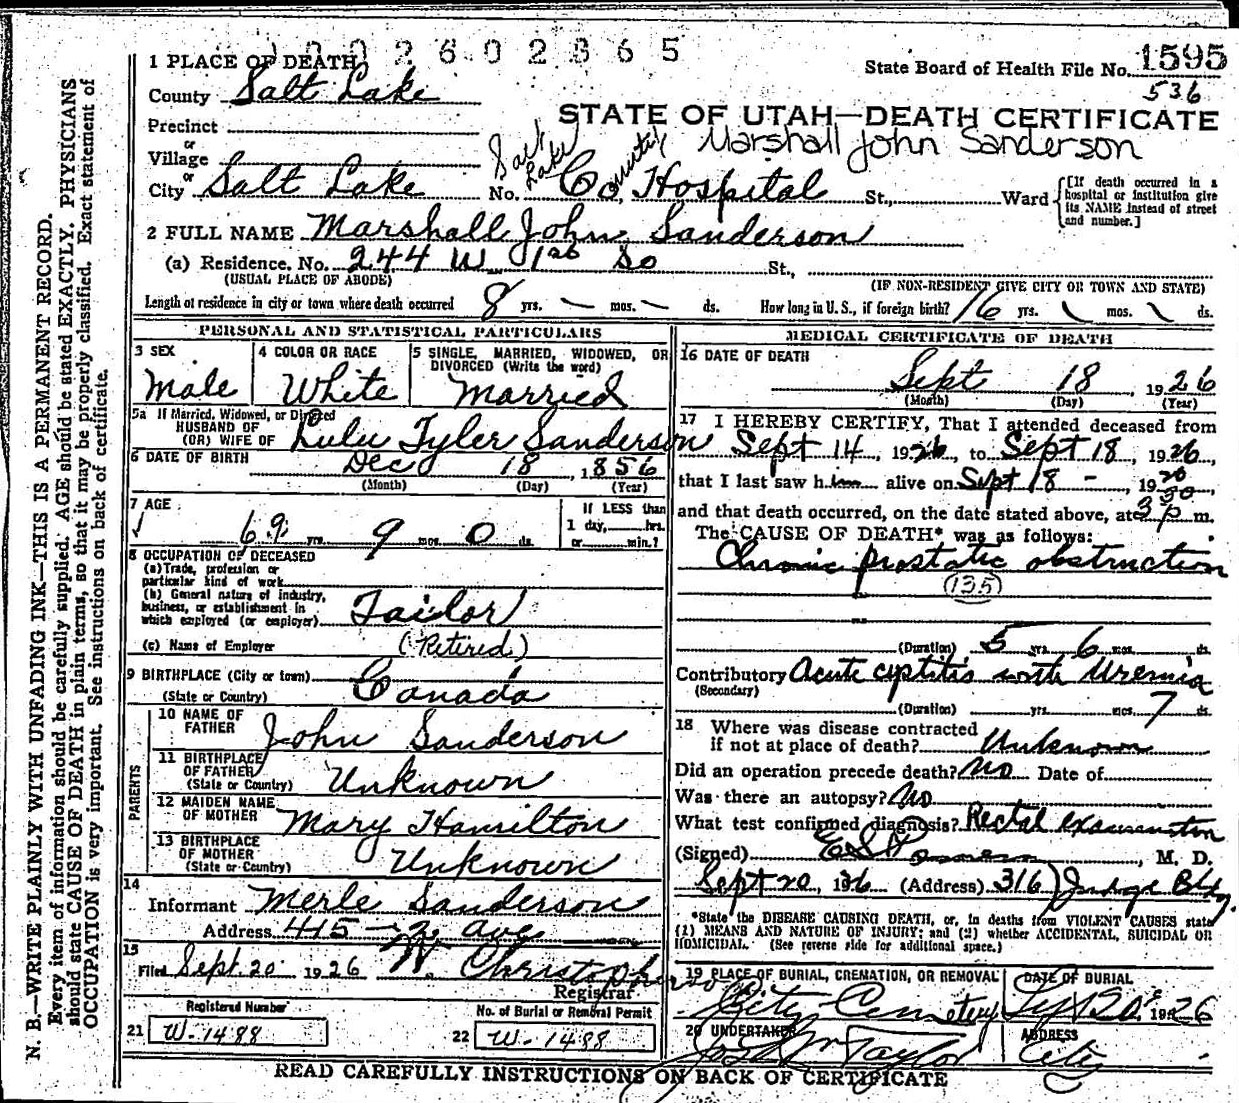 1002602865
1 PLACE OF DEATH
State Board of Health File No. 1595
536
County Salt Lake
STATE OF UTAH—DEATH CERTIFICATE
Precinct
Marshall John Sanderson
or
Village
or
City Salt Lake No. Salt Lake County Co. Hospital St., Ward [If death occurred in a hospital or institution give its NAME instead of street and number.]
2 FULL NAME Marshall John Sanderson
(a) Residence. No. 244 W 1st So St.,
(USUAL PLACE OF ABODE) (IF NON-RESIDENT GIVE CITY OR TOWN AND STATE)
Length of residence in city or town where death occurred 8 yrs. — mos. — ds. How long in U. S., if foreign birth? 16 yrs. \ mos. \ ds.
PERSONAL AND STATISTICAL PARTICULARS
3 SEX
Male
4 COLOR OR RACE
White
5 SINGLE, MARRIED, WIDOWED, OR
DIVORCED (Write the word)
Married
5a If Married, Widowed, or Divorced
HUSBAND OF
(OR) WIFE OF Lulu Tyler Sanderson
6 DATE OF BIRTH Dec 18, 1856
(Month) (Day) (Year)
7 AGE
69 yrs. 9 mos. 0 ds.
If LESS than
1 day, hrs.
or min.?
8 OCCUPATION OF DECEASED
(a) Trade, profession or
particular kind of work
(b) General nature of industry,
business, or establishment in
which employed (or employer) Tailor
(c) Name of Employer (Retired)
9 BIRTHPLACE (City or town)
(State or Country) Canada
PARENTS
10 NAME OF
FATHER John Sanderson
11 BIRTHPLACE
OF FATHER
(State or Country) Unknown
12 MAIDEN NAME
OF MOTHER Mary Hamilton
13 BIRTHPLACE
OF MOTHER
(State or Country) Unknown
14
Informant Merle Sanderson
Address 415 - 2 Ave
15
Filed Sept. 20 1926 W. Christopherson
Registrar
Registered Number
21 W-1488
No. of Burial or Removal Permit
22 W-1488
MEDICAL CERTIFICATE OF DEATH
16 DATE OF DEATH
Sept 18, 1926
(Month) (Day) (Year)
17 I HEREBY CERTIFY, That I attended deceased from
Sept 14, 1926, to Sept 18, 1926,
that I last saw him alive on Sept 18 -, 19
and that death occurred, on the date stated above, at 3 30 p. m.
The CAUSE OF DEATH* was as follows:
Chronic prostatic obstruction
(135)
(Duration) 5 yrs. 6 mos. ds.
Contributory Acute cystitis with Uremia
(Secondary)
(Duration) yrs. mos. 7 ds.
18 Where was disease contracted
if not at place of death? Unknown
Did an operation precede death? No Date of
Was there an autopsy? No
What test confirmed diagnosis? Rectal examination
(Signed) , M. D.
Sept 20, 1926 (Address) 316 Judge Bldg.
*State the DISEASE CAUSING DEATH, or, in deaths from VIOLENT CAUSES state
(1) MEANS AND NATURE OF INJURY; and (2) whether ACCIDENTAL, SUICIDAL OR
HOMICIDAL. (See reverse side for additional space.)
19 PLACE OF BURIAL, CREMATION, OR REMOVAL
City Cemetery
DATE OF BURIAL
1926
20 UNDERTAKER
Taylor
ADDRESS
City
READ CAREFULLY INSTRUCTIONS ON BACK OF CERTIFICATE
N. B.—WRITE PLAINLY WITH UNFADING INK—THIS IS A PERMANENT RECORD.
Every item of information should be carefully supplied. AGE should be stated EXACTLY. PHYSICIANS
should state CAUSE OF DEATH in plain terms, so that it may be properly classified. Exact statement of
OCCUPATION is very important. See instructions on back of certificate.